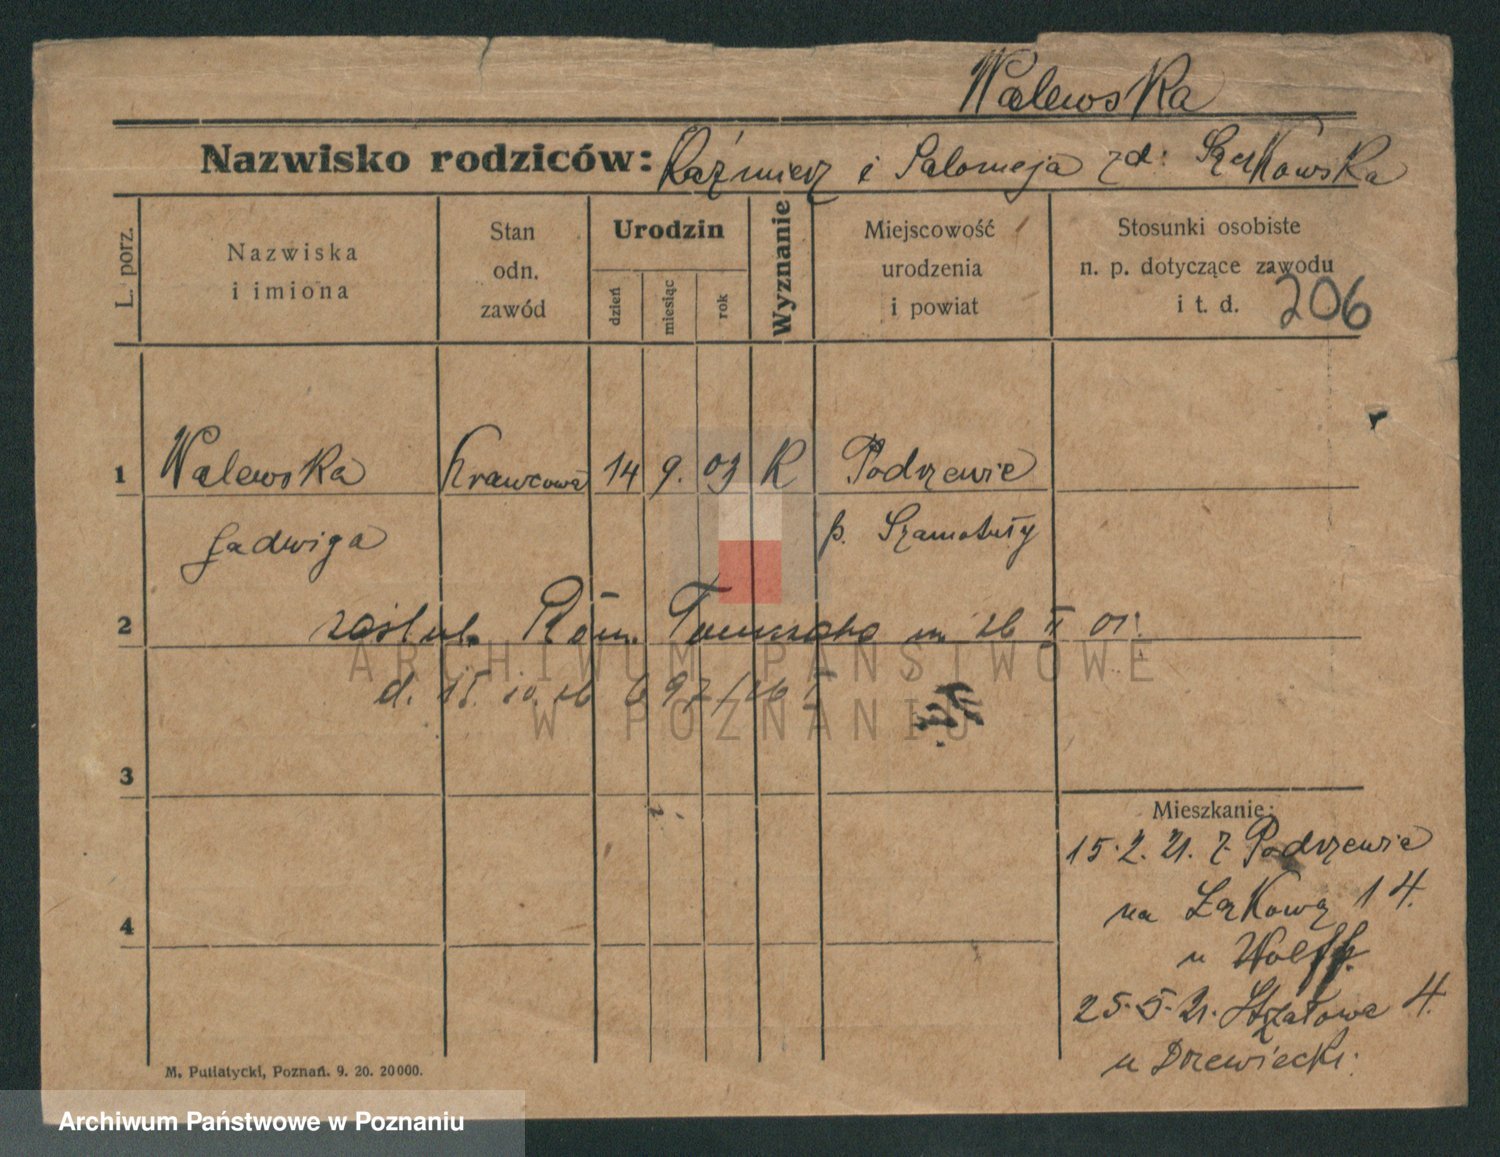 Walewska
Nazwisko rodziców: Kaźmierz i Salomeja zd:
L. porz.
Nazwiska
i imiona
Stan
odn.
zawód
Urodzin
dzień
miesiąc
rok
Wyznanie
Miejscowość
urodzenia
i powiat
Stosunki osobiste
n. p. dotyczące zawodu
i t. d.
206
1 Walewska Krawcowa 14 9. 03 K Podrzewie
Jadwiga p. Szamotuły
2 zaślub. Tomczaka
d. 15. 10. 26
3
Mieszkanie:
15.2.21. z Podrzewie
na Łąkową 14.
u Wolff.
4
25.5.21. Strzałowa 4.
u Drzewiecki.
M. Putiatycki, Poznań. 9. 20. 20000.
ARCHIWUM PAŃSTWOWE
W POZNANIU
Archiwum Państwowe w Poznaniu